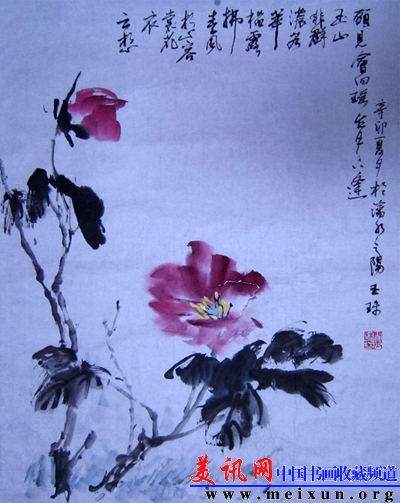 云想
衣
裳花
想容
春风
拂
檻露
華
濃若
非群
玉山
頭見會向瑶台月下逢
辛卯夏月於湍水之陽
美讯网
中国书画收藏频道
www.meixun.org